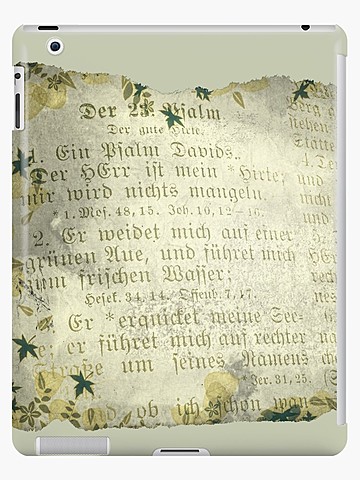 Der 23. Psalm.
Der gute Hirte.
1. Ein Psalm Davids.
Der HErr ist mein *Hirte;
mir wird nichts mangeln.
*1. Mos. 48, 15. Joh. 10, 12–16.
2. Er weidet mich auf einer
grünen Aue, und führet mich
zum frischen Wasser;
Hesek. 34, 14. Offenb. 7, 17.
3. Er *erquicket meine See-
le, er führet mich auf rechter
Straße um seines Namens
*Jer. 31, 25.
und ob ich schon wan
Berg
stehen
Stätte
4.
und
und
rech
nes